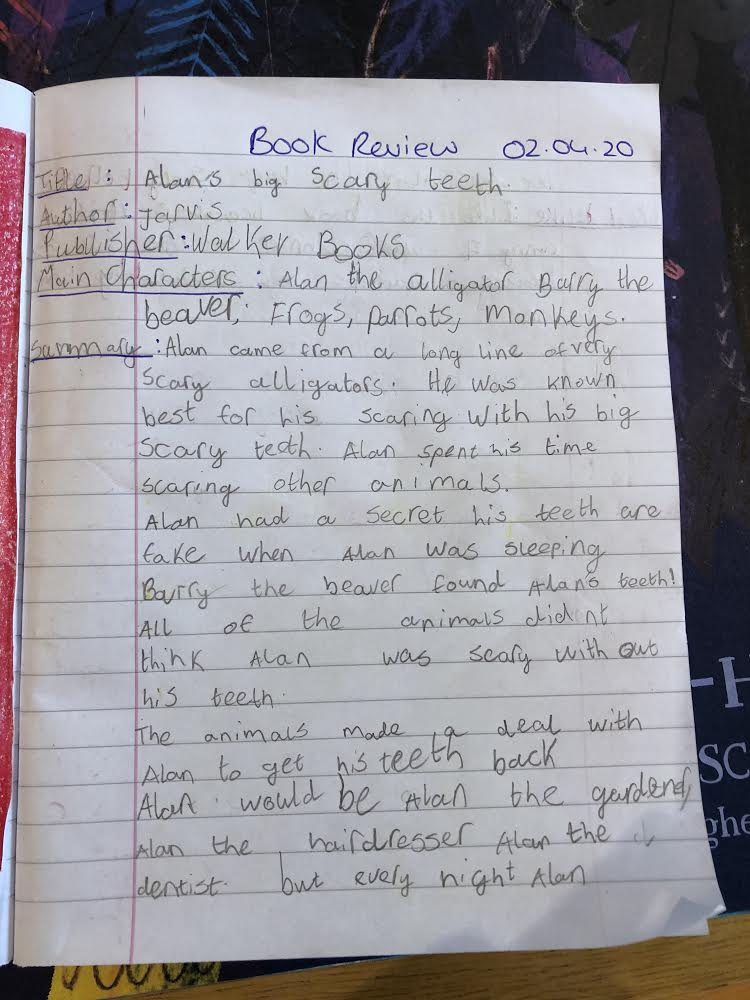 Book Review 02.04.20
Title: Alan's big scary teeth.
Author: Jarvis
Publlisher: Walker Books
Main Characters: Alan the alligator Barry the
beaver, Frogs, parrots, Monkeys.
Summary: Alan came from a long line of very
scary alligators. He was known
best for his scaring with his big
scary teeth. Alan spent his time
scaring other animals.
Alan had a secret his teeth are
fake when Alan was sleeping
Barry the beaver found Alan's teeth!
All of the animals did nt
think Alan was scary with out
his teeth.
The animals made a deal with
Alan to get his teeth back
Alan would be Alan the
Alan the hairdresser Alan the
dentist. but every night Alan
-H
SC
ghe